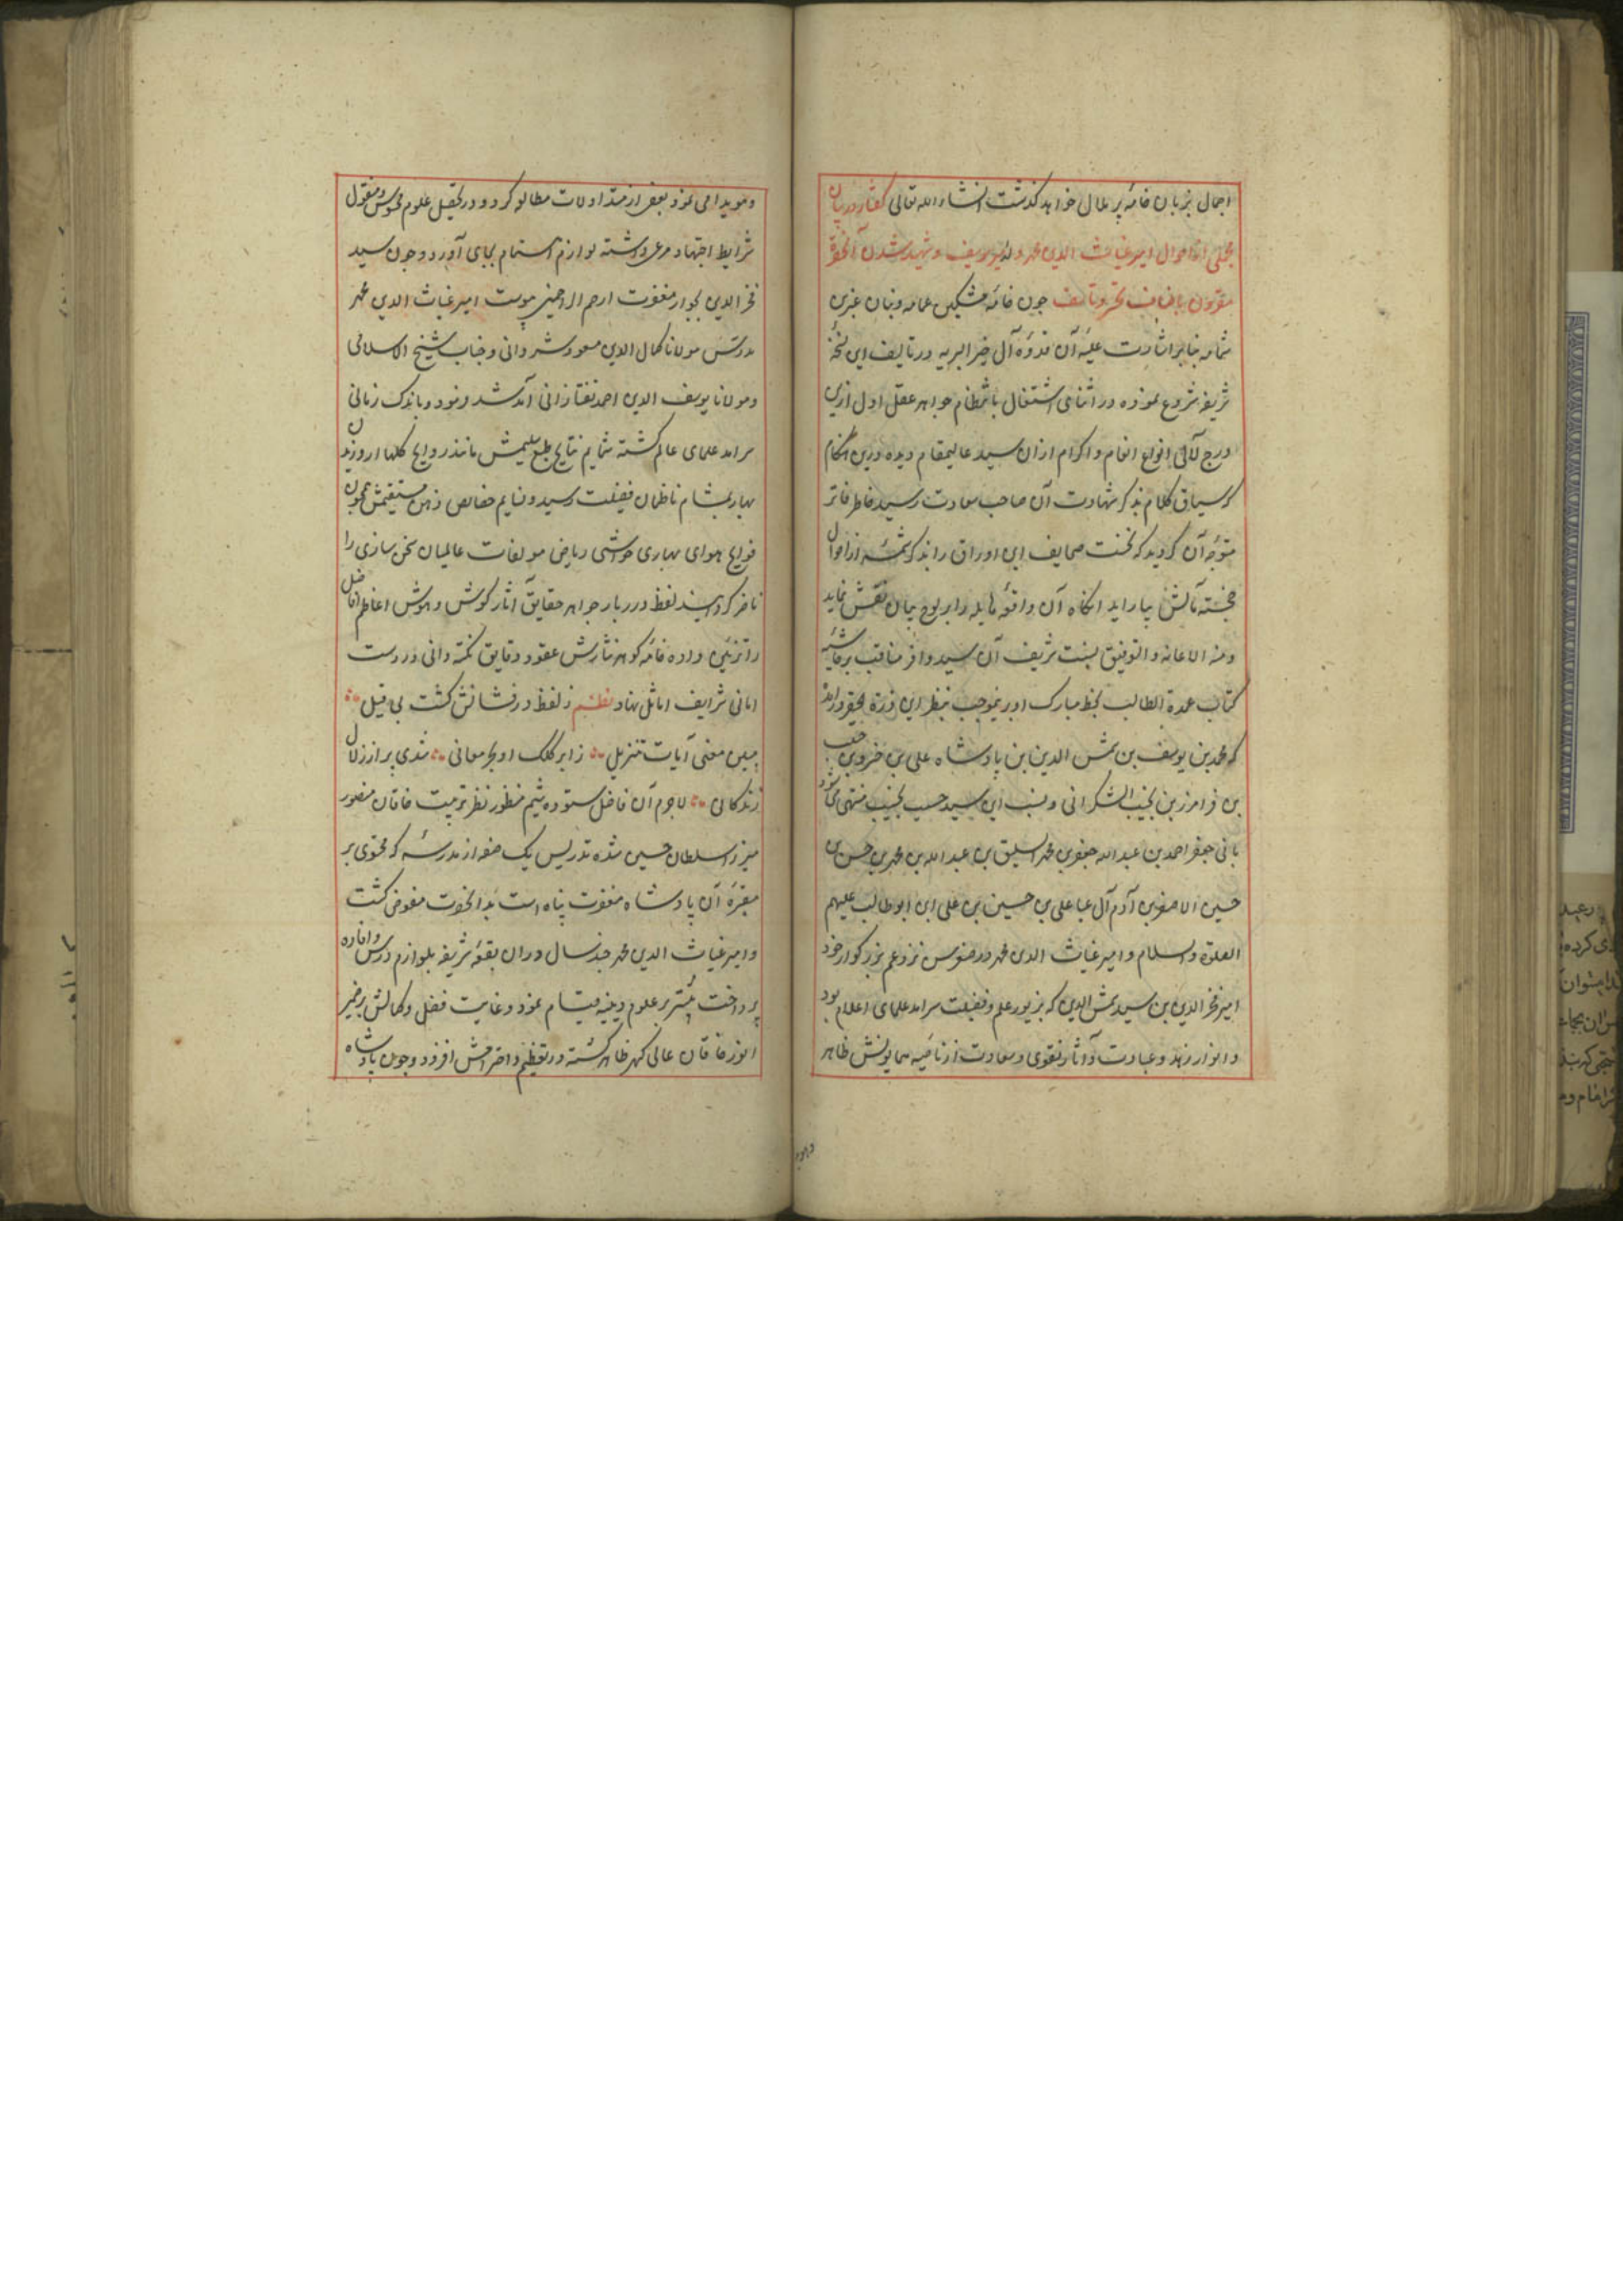 اجمال بزبان خامه پر علال خواهد گذشت انشاء الله تعالی گفتار در بیان
مجملی از احوال امیر غیاث الدین محمد ولد امیر یوسف و شهید شدن آنحضرت
مقرون باضاف تحسر و تاسف چون خامه مشکین عمامه و بنان عنبرین
شمامه بنا بر اشارت علیه آن قدوه آل خیر البریه در تالیف این نسخه
شریفه شروع نموده در اثنای اشتغال بانتظام جواهر عقل اول ازین
درج لآلی انواع انعام و اکرام ازان سید عالیمقام دیده درین هنگام
که سیاق کلام بذکر شهادت آن صاحب سعادت رسید خاطر فاتر
متوجه آن گردید که نخست صحایف این اوراق را بذکر شمه از احوال
خجسته مآلش بیاراید انگاه آن واقعه هایله را بر لوح بیان نقش نماید
و منه الاعانه و التوفیق نسبت شریف آن سید وافر مناقب بر حاشیه
کتاب عمدة الطالب بخط مبارک او برینموجب بنظر این ذره احقر در آمد
که محمد بن یوسف بن شمس الدین بن پادشاه علی بن خسرو بن
بن فرامرز بن نجیب الشکرانی و نسب این سید حسیب نجیب منتهی میشود
بابی جعفر احمد بن عبد الله جعفر بن محمد السلیق بن عبد الله بن محمد بن حسن بن
حسین الاصغر بن آدم آل عبا علی بن حسین بن علی ابن ابو طالب علیهم
الصلوة و السلام و امیر غیاث الدین محمد در صغر سن نزد عم بزرگوار خود
امیر فخر الدین بن سید شمس الدین که بزیور علم و فضیلت سرآمد علمای اعلام بود
و انوار زهد و عبادت و آثار تقوی و سعادت از ناصیه همایونش ظاهر
و هویدا می نمود بعضی از متداولات مطالعه کرد و در تحصیل علوم محسوس و معقول
شرایط اجتهاد مرعی داشته لوازم اهتمام بجای آورد و چون سید
فخر الدین بجوار مغفرت ارحم الراحمین پیوست امیر غیاث الدین محمد
بدرس مولانا کمال الدین مسعود شروانی و جناب شیخ الاسلامی
و مولانا یوسف الدین احمد تفتازانی آمد شد نمود و باندک زمانی
سرآمد علمای عالم گشته شمایم نتایج طبع سلیمش مانند روایح گلها در روزان
بهار بمشام ناظمان فضیلت رسید و نسایم خصائص ذهن مستقیمش همچون
فوایح هوای بهاری حواشی ریاض مولفات عالمیان سخن سازی را
ناضر گردانید لفظ درربار جواهر حقایق آثار گوش و هوش اعاظم افاضل
را تزیین داده خامه گوهر نثارش عقود دقایق نکته دانی در دست
امانی شرایف اماثل نهاد نظم ز لفظ درفشانش گشت بی قیل
مبین معنی آیات تنزیل ز ابر کلک او بحر معانی شدی پر از زلال
زندگانی لاجرم آن فاضل ستوده شیم منظور نظر تربیت خاقان منصور
میرزا سلطان حسین شده تدریس یک صفه از مدرسه که محتوی بر
مقبره آن پادشاه مغفرت پناه است بدانحضرت مفوض گشت
و امیر غیاث الدین محمد چند سال در ان بقعه شریفه بلوازم درس و افاده
پرداخت بیشتر بر علوم دینیه قیام نمود و غایت فضل و کمالش بر ضمیر
انور خاقان عالی گهر ظاهر گشته در تعظیم و احترامش افزود و چون پادشاه